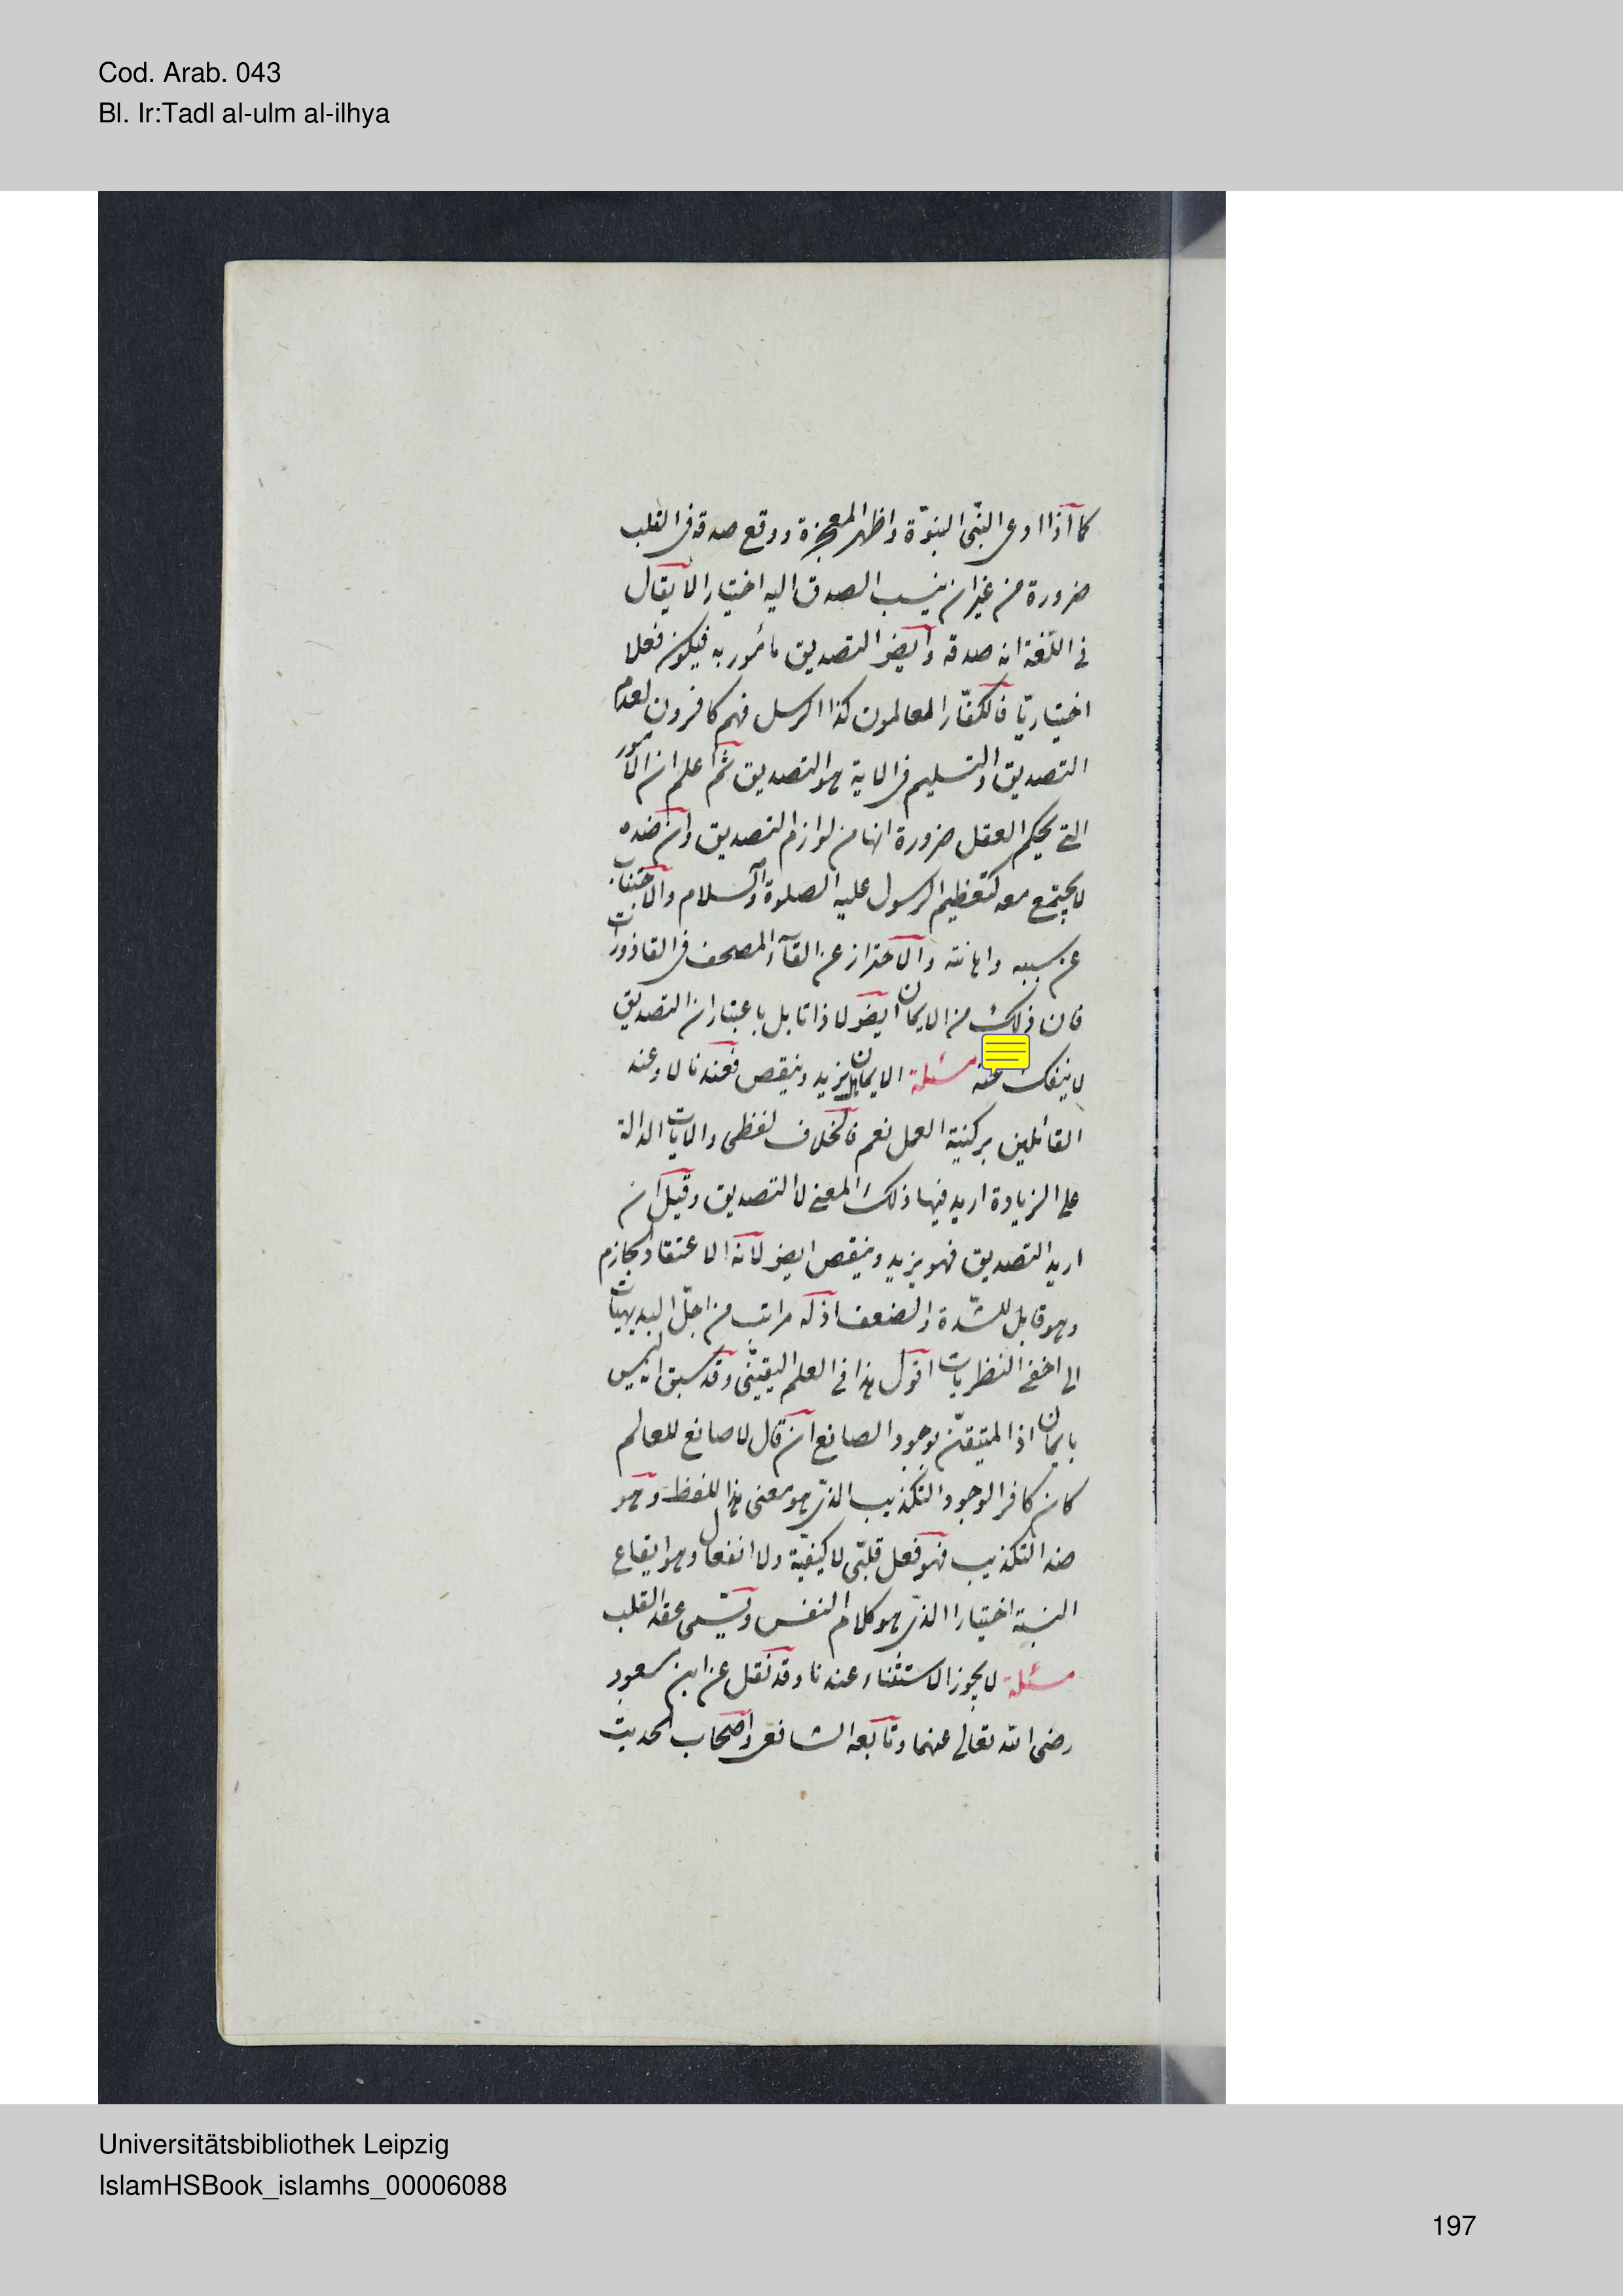 Cod. Arab. 043
Bl. Ir:Tadl al-ulm al-ilhya
كما اذا ادعى النبّى النبوّة واظهر المعجزة ووقع صدقه فى القلب
ضرورة من غير ان ينسب الصدق اليه اختيارا لا يقال
فى اللّغة انه صدقه وايضا التصديق مأمور به فيكون فعلا
اختياريّا فالكفّار المعالمون كذا الرسل فهم كافرون لعدم
التصديق والتسليم فى الاية هو التصديق ثم اعلم ان الامور
التى يحكم العقل ضرورة انها من لوازم التصديق وان ضده
لا يجتمع معه كتعظيم الرسول عليه الصلوة والسلام والاجتناب
عن سببه واهانته والاحتراز عن القآء المصحف فى القاذورات
فان ذلك من الايمان ايضا لا ذاتا بل باعتبار ان التصديق
لا ينفك عنه مسئلة الايمان هل يزيد وينقص فعندنا لا وعند
القائلين بركنية العمل نعم فالخلاف لفظى والايات الدالة
على الزيادة اريد فيها ذلك المعنى لا التصديق وقيل ان
اريد التصديق فهو يزيد وينقص ايضا لانه الاعتقاد الجازم
وهو قابل للشّدة والضعف اذ له مراتب من اجلّ البديهيات
الى اخفى النظريات اقول هذا فى العلم اليقينّى وقد سبق انه ليس
بايمان اذ المتيقّن بوجود الصانع ان قال لا صانع للعالم
كان كافرا لوجود التكذيب الذى هو معنى هذا اللفظ وهو
ضد التكذيب فهو فعل قلبّى لا كيفيّة ولا انفعال وهو ايقاع
النسبة اختيارا الذى هو كلام النفس ويسّمى عقد القلب
مسئلة لا يجوز الاستثناء عندنا وقد نقل عن ابن مسعود
رضى الله تعالى عنهما وتابعه الشافعى واصحاب الحديث
Universitätsbibliothek Leipzig
IslamHSBook_islamhs_00006088
197